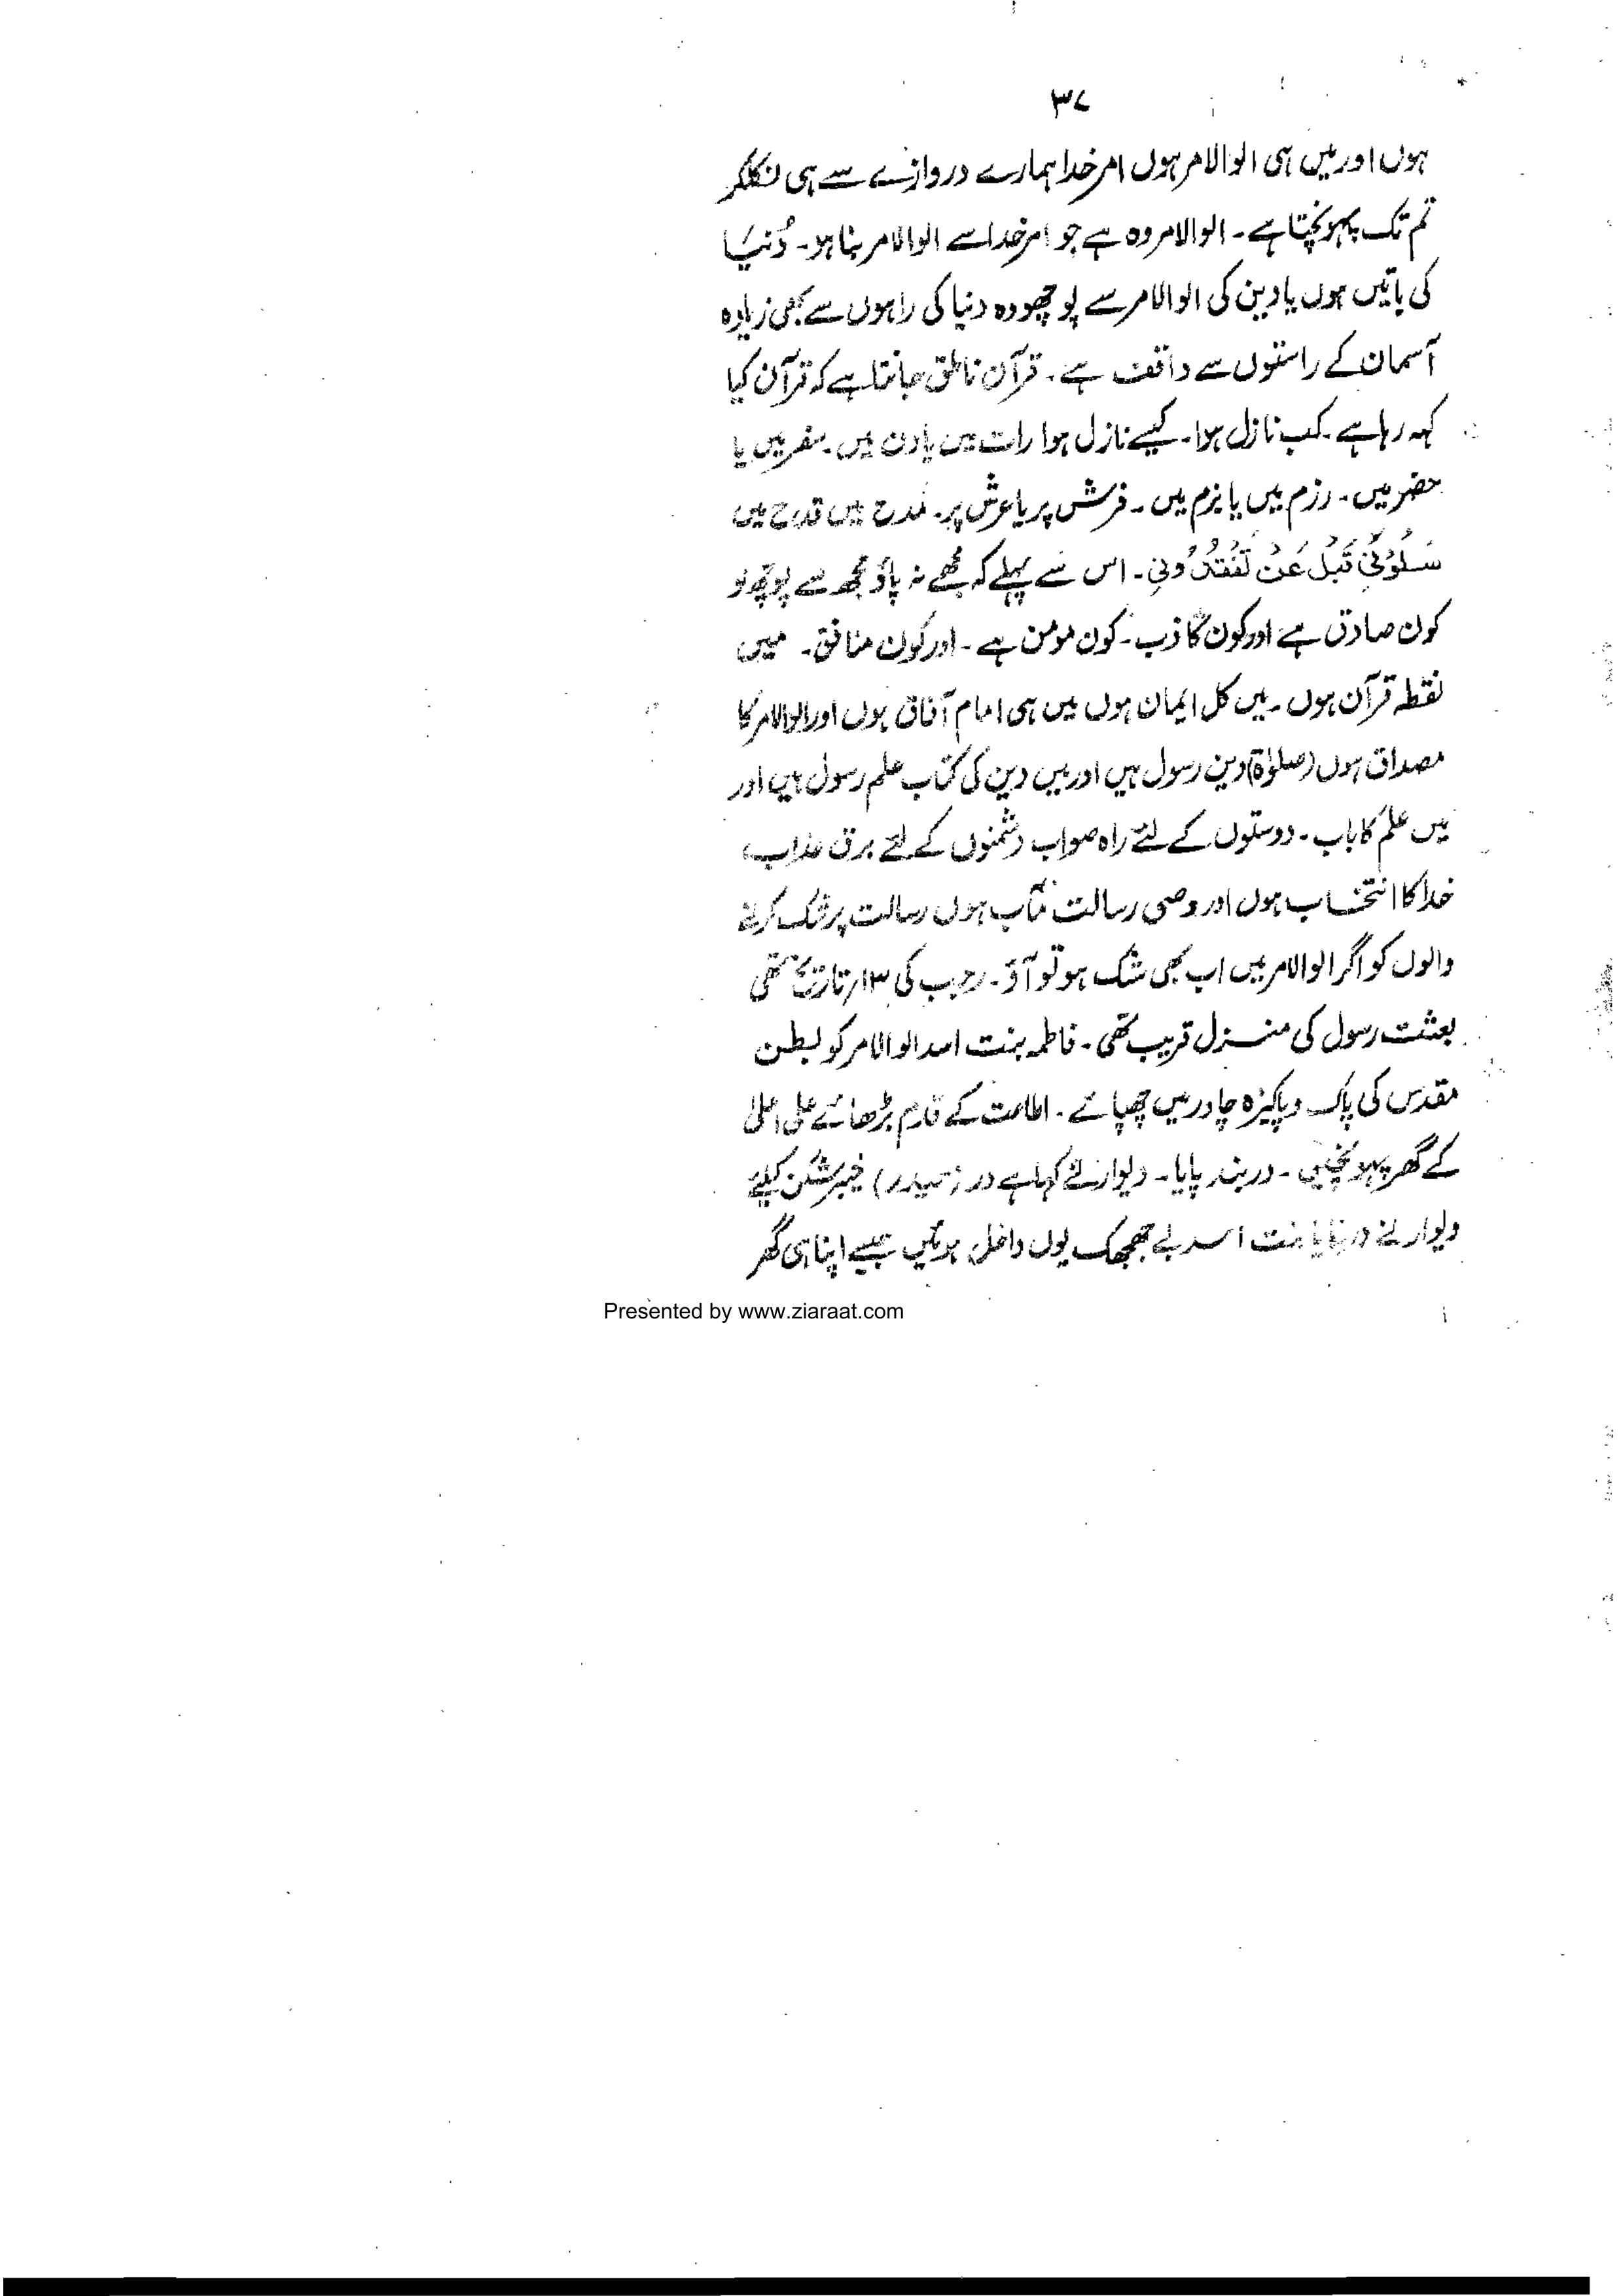 ۳۷
ہوں اور میں ہی الوالامر ہوں امر خدا ہمارے دروازے سے ہی نکلکر
تم تک پہونچتا ہے۔ الوالامر وہ ہے جو امر خدا سے الوالامر بنا ہو۔ دُنیَا
کی باتیں ہوں یا دین کی الوالامر سے پوچھو وہ دنیا کی راہوں سے بھی زیادہ
آسمان کے راستوں سے واقف ہے۔ قرآن ناطق جانتا ہے کہ قرآن کیا
کہہ رہا ہے۔ کب نازل ہوا۔ کیسے نازل ہوا رات میں یا دن میں۔ سفر میں یا
حضر میں۔ رزم میں یا بزم میں۔ فرش پر یا عرش پر۔ مدح میں قدح میں
سَلُوْنِیْ قَبْلَ عَنْ تَفْقُدُونِی۔ اس سے پہلے کہ مجھے نہ پاؤ مجھ سے پوچھ لو
کون صادق ہے اور کون کاذب۔ کون مومن ہے۔ اور کون منافق۔ میں
نقطہ قرآن ہوں۔ میں کل ایمان ہوں میں ہی امام آفاق ہوں اور الوالامر کا
مصداق ہوں (صلوٰۃ) دین رسول ہیں اور میں دین کی کتاب علم رسول ہیں اور
میں علم کا باب۔ دوستوں کے لئے راہ صواب دشمنوں کے لئے برق عذاب
خدا کا انتخاب ہوں اور وصی رسالت مآب ہوں رسالت پر شک کرنے
والوں کو اگر الوالامر میں اب بھی شک ہو تو آؤ۔ رجب کی ۱۳/ تاریخ تھی
بعثت رسول کی منزل قریب تھی۔ فاطمہ بنت اسد الوالامر کو لبطن
مقدس کی پاک و پاکیزہ چادر میں چھپائے۔ اطاعت کے قدم بڑھائے علی اعلیٰ
کے گھر پہونچیں۔ در بند پایا۔ دیوار نے کہا ہے در (حیدر) خیبر شکن کیلئے
دیوار نے در بنایا بنت اسد بے جھجھک یوں داخل ہوئیں جیسے اپنا ہی گھر
Presented by www.ziaraat.com